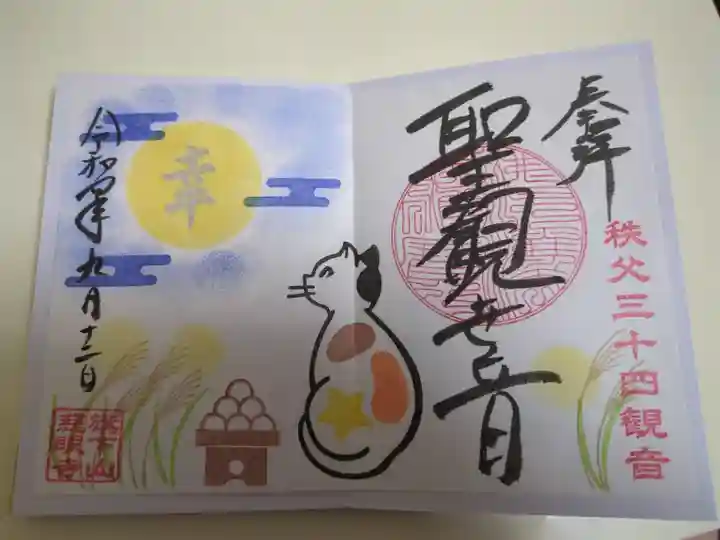 奉拝
秩父三十四観音
聖観世音
幸
令和四年九月十二日